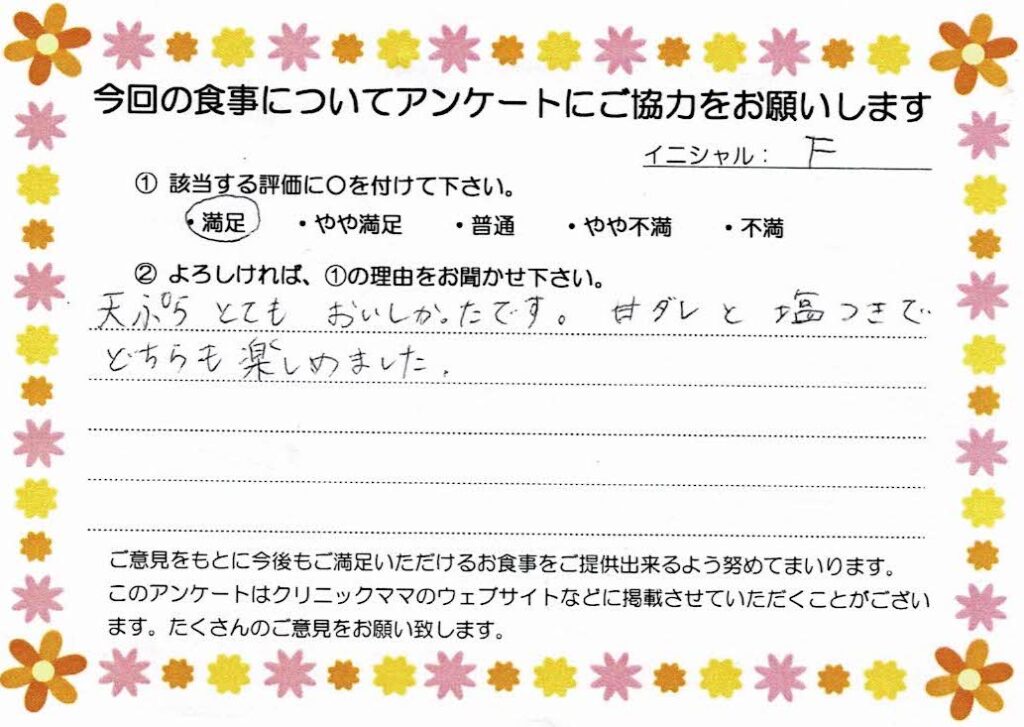 今回の食事についてアンケートにご協力をお願いします
イニシャル： F
① 該当する評価に〇を付けて下さい。
・満足 ・やや満足 ・普通 ・やや不満 ・不満
② よろしければ、①の理由をお聞かせ下さい。
天ぷら とても おいしかったです。 甘ダレ と 塩つきで
どちらも楽しめました。
ご意見をもとに今後もご満足いただけるお食事をご提供出来るよう努めてまいります。
このアンケートはクリニックママのウェブサイトなどに掲載させていただくことがござい
ます。たくさんのご意見をお願い致します。